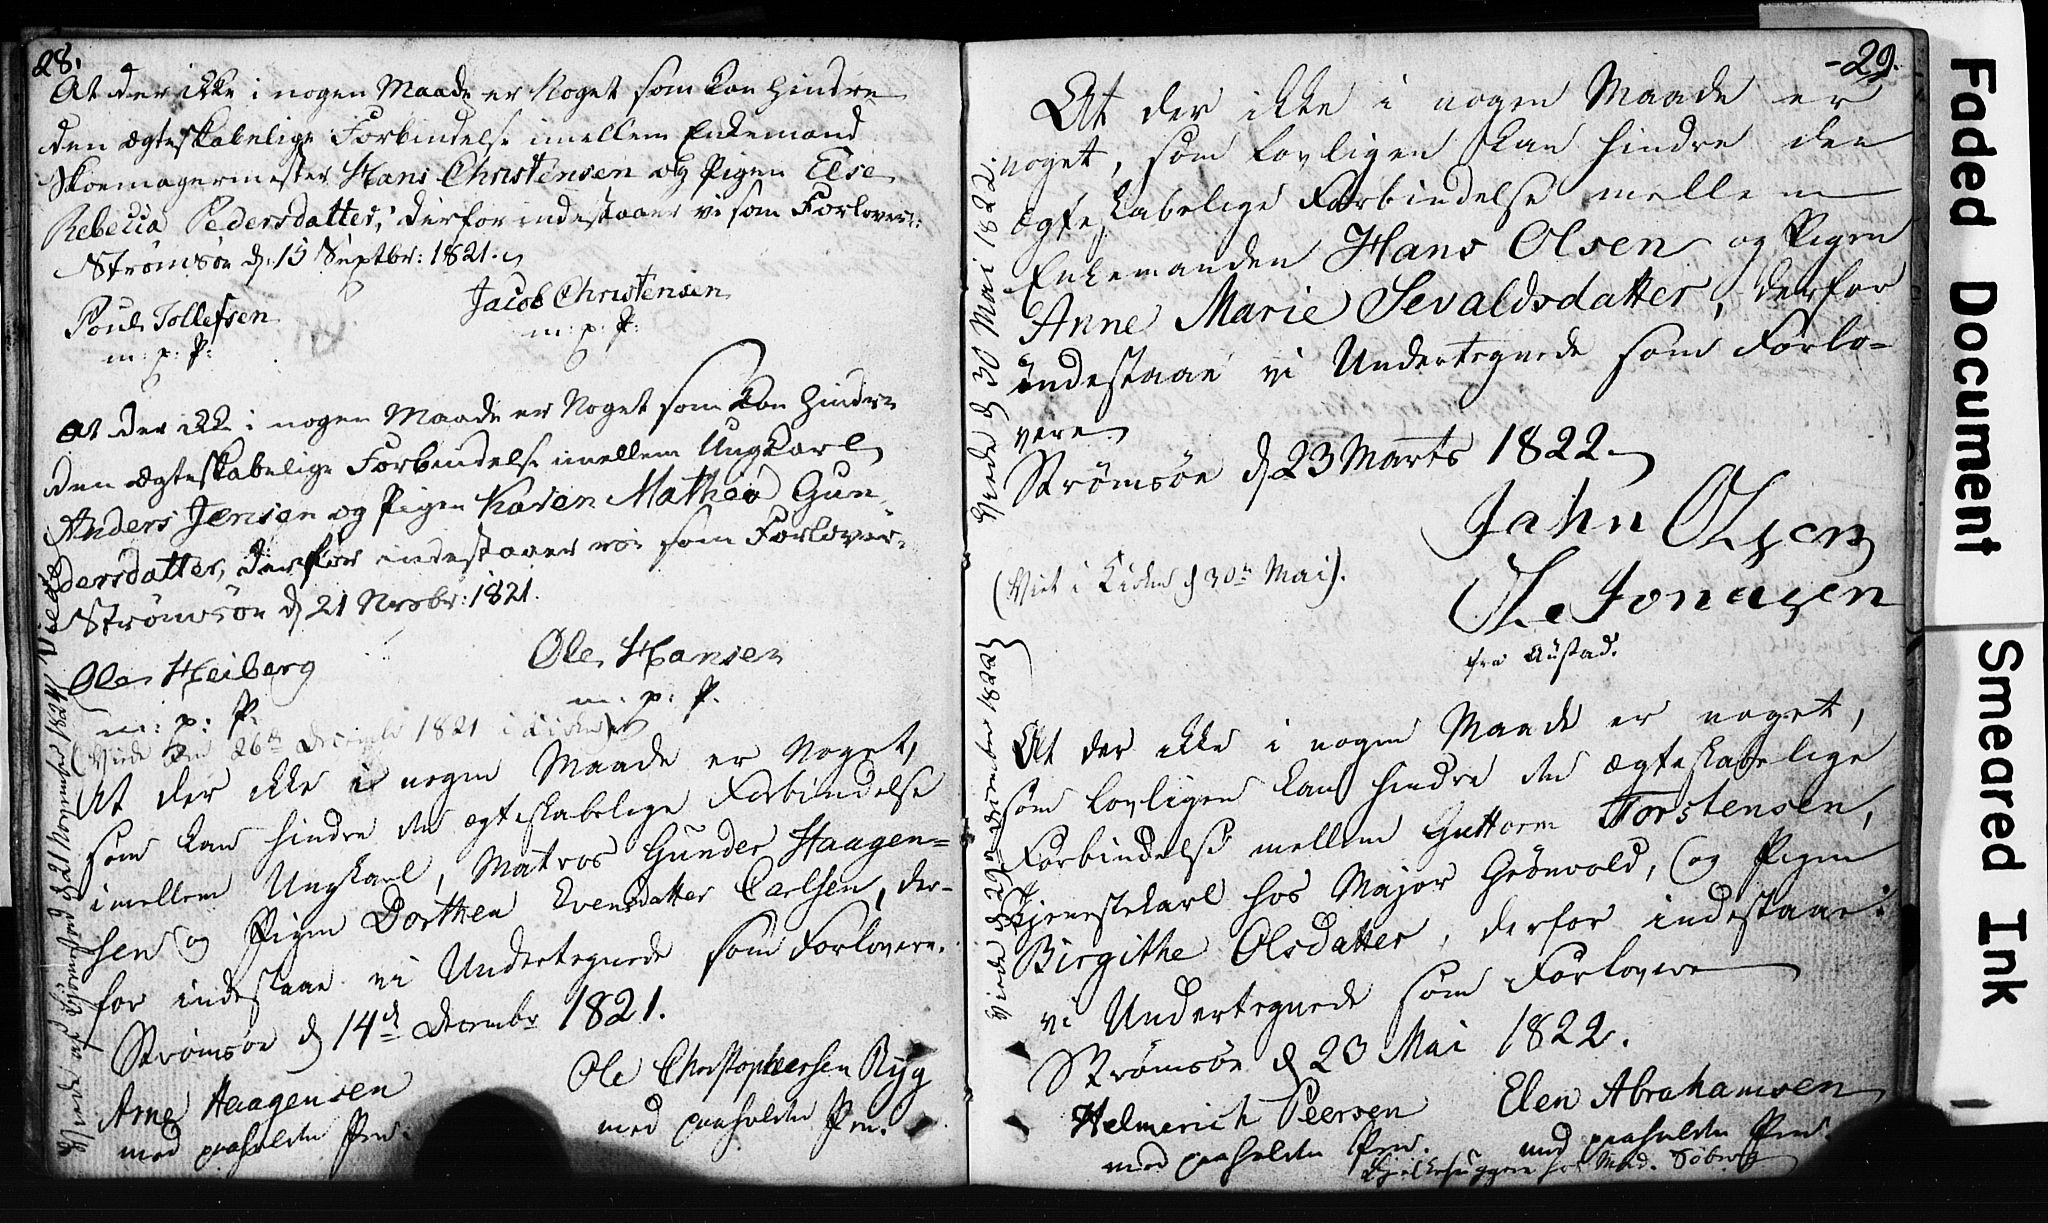 28.
At der ikke i nogen Maade er Noget som kan hindre
den ægteskabelige Forbindelse imellem Enkemand
Skoemagermester Hans Christensen og Pigen Else
Rebecca Pedersdatter, derfor indestaaer vi som Forlover:
Strömsöe d. 15 Septbr: 1821.
Poul Tollefsen
Jacob Christensen
m: p: P:
m: p: P:
At der ikke i nogen Maade er Noget som kan hindre
den ægteskabelige Forbindelse imellem Ungkarl
Anders Jensen og Pigen Karen Mathea Gun-
dersdatter, derfor indestaaer vi som Forlover.
Strömsöe d. 21 Novbr: 1821.
Ole Heiberg
Ole Hansen
m: p: P.
m: p: P.
(Viede den 26de December 1821 i Kirken)
At der ikke i nogen Maade er Noget,
som kan hindre den ægteskabelige Forbindelse
imellem Ungkarl, Matros Gunder Haagen=
sen og Pigen Dorthea Evensdatter Carlsen, der-
for indestaae vi Undertegnede som Forlovere.
Strømsøe d. 14d Decembr 1821.
Arne Haagensen
Ole Christophersen Ryg
med paaholden Pen.
med paaholden Pen.
Viede af Hjermstad d. 21 November 1824
-29.
At der ikke i nogen Maade er
noget, som lovligen kan hindre den
ægteskabelige Forbindelse mellem
Enkemanden Hans Olsen og Pigen
Anne Marie Sevaldsdatter, derfor
indestaae vi Undertegnede som Forlo-
vere.
Strømsøe d. 23 Marts 1822.
Jahn Olsen
(Viet i Kirken d. 30te Mai).
Ole Jonasen
fra Austad.
Viede d. 30 Mai 1822.
At der ikke i nogen Maade er noget,
som lovligen kan hindre den ægteskabelige
Forbindelse mellem Guttorm Torstensen,
Tjenestekarl hos Major Grönvold, og Pigen
Birgithe Olsdatter, derfor indestaae
vi Undertegnede som Forlovere
Strømsøe d. 23 Mai 1822.
Helmerich Peersen
Elen Abrahamsen
med paaholden Pen.
med paaholden Pen.
hos Mad. Söberg
Viede d. 29 December 1822
Faded Document
Smeared Ink